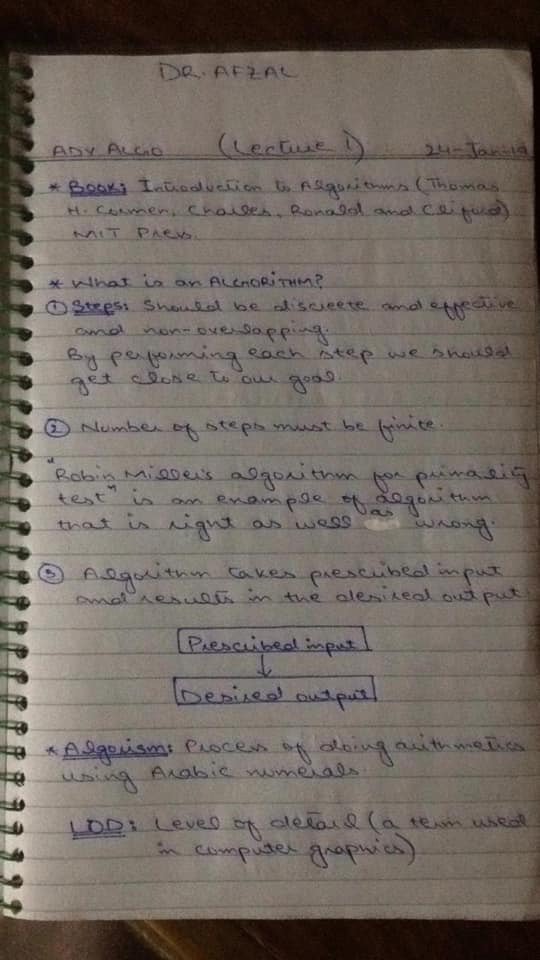 DR. AFZAL
ADV ALGO (Lecture 1) 24-Jan-19
* Book: Introduction to Algorithms (Thomas
H. Cormen, Charles, Ronald and Clifford)
MIT Press.
* What is an ALGHORITHM?
① Steps: Should be discreete and effective
and non-overlapping.
By performing each step we should
get close to our goal.
② Number of steps must be finite.
"Robin Miller's algorithm for primality
test" is an example of algorithm
that is right as well as wrong.
③ Algorithm takes prescribed input
and results in the desired output.
Prescribed input
↓
Desired output
* Algorism: Process of doing arithmetics
using Arabic numerals.
LOD: Level of detail (a term used
in computer graphics)